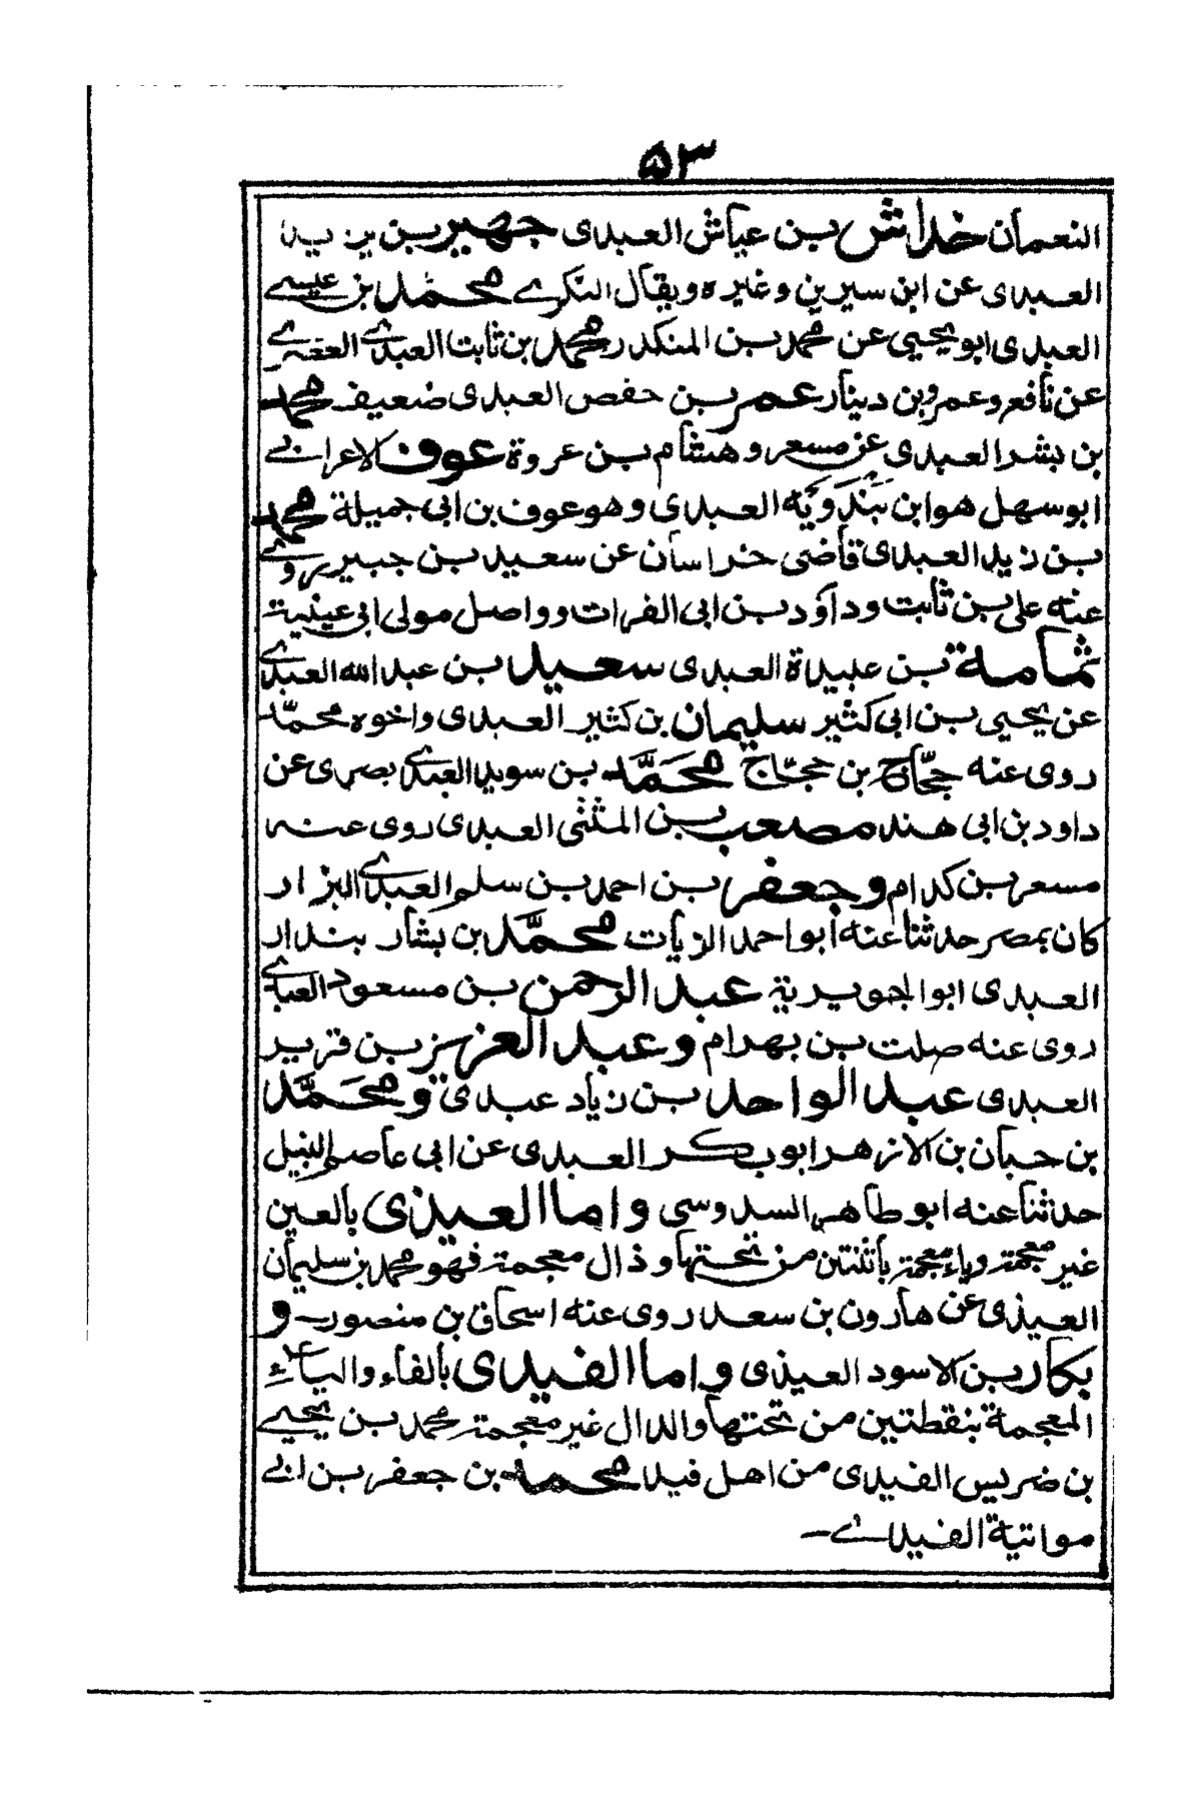 ٥٣
النعمان خداش بن عياش العبدى جهير بن يزيد
العبدى عن ابن سيرين وغيره ويقال النكرے محمد بن عيسے
العبدى ابو يحيى عن محمد بن المنكدر محمد بن ثابت العبدے العصرے
عن نافع وعمرو بن دينار عمر بن حفص العبدى ضعيف محمد
بن بشر العبدى عن مسعر وهشام بن عروة عوف الاعرابے
ابو سهل هو ابن بَنْدَوَيْه العبدى وهو عوف بن ابى جميلة محمد
بن زيد العبدى قاضى خراسان عن سعيد بن جبير روے
عنه على بن ثابت وداؤد بن ابى الفرات وواصل مولى ابى عينية
ثمامة بن عبيدة العبدى سعيد بن عبد الله العبدے
عن يحيى بن ابى كثير سليمان بن كثير العبدى واخوه محمّد
روى عنه حجّاج بن حجّاج محمَّد بن سويد العبدے بصرى عن
داود بن ابى هند مصعب بن المثنى العبدى روى عنه
مسعر بن كدام وجعفر بن احمد بن سلم العبدے البزار
كان بمصر حدثنا عنه ابو احمد الزيات محمَّد بن بشار بندار
العبدى ابو الجويرية عبد الرحمن بن مسعود العبدے
روى عنه صلت بن بهرام وعبد العزيز بن قرير
العبدى عبد الواحد بن زياد عبدى ومحمَّد
بن حبان بن الازهر ابو بكر العبدى عن ابى عاصم النبيل
حدثنا عنه ابو طاهر السدوسى واما العيذى بالعين
غير معجمة وياء معجمة باثنتين من تحتها وذال معجمة فهو محمد بن سليمان
العيذى عن هارون بن سعد روى عنه اسحاق بن منصور و
بكار بن الاسود العيذى واما الفيدى بالفاء والياء
المعجمة بنقطتين من تحتها والدال غير معجمة محمد بن يحيے
بن ضريس الفيدى من اهل فيد محمد بن جعفر بن ابے
مواتية الفيدے